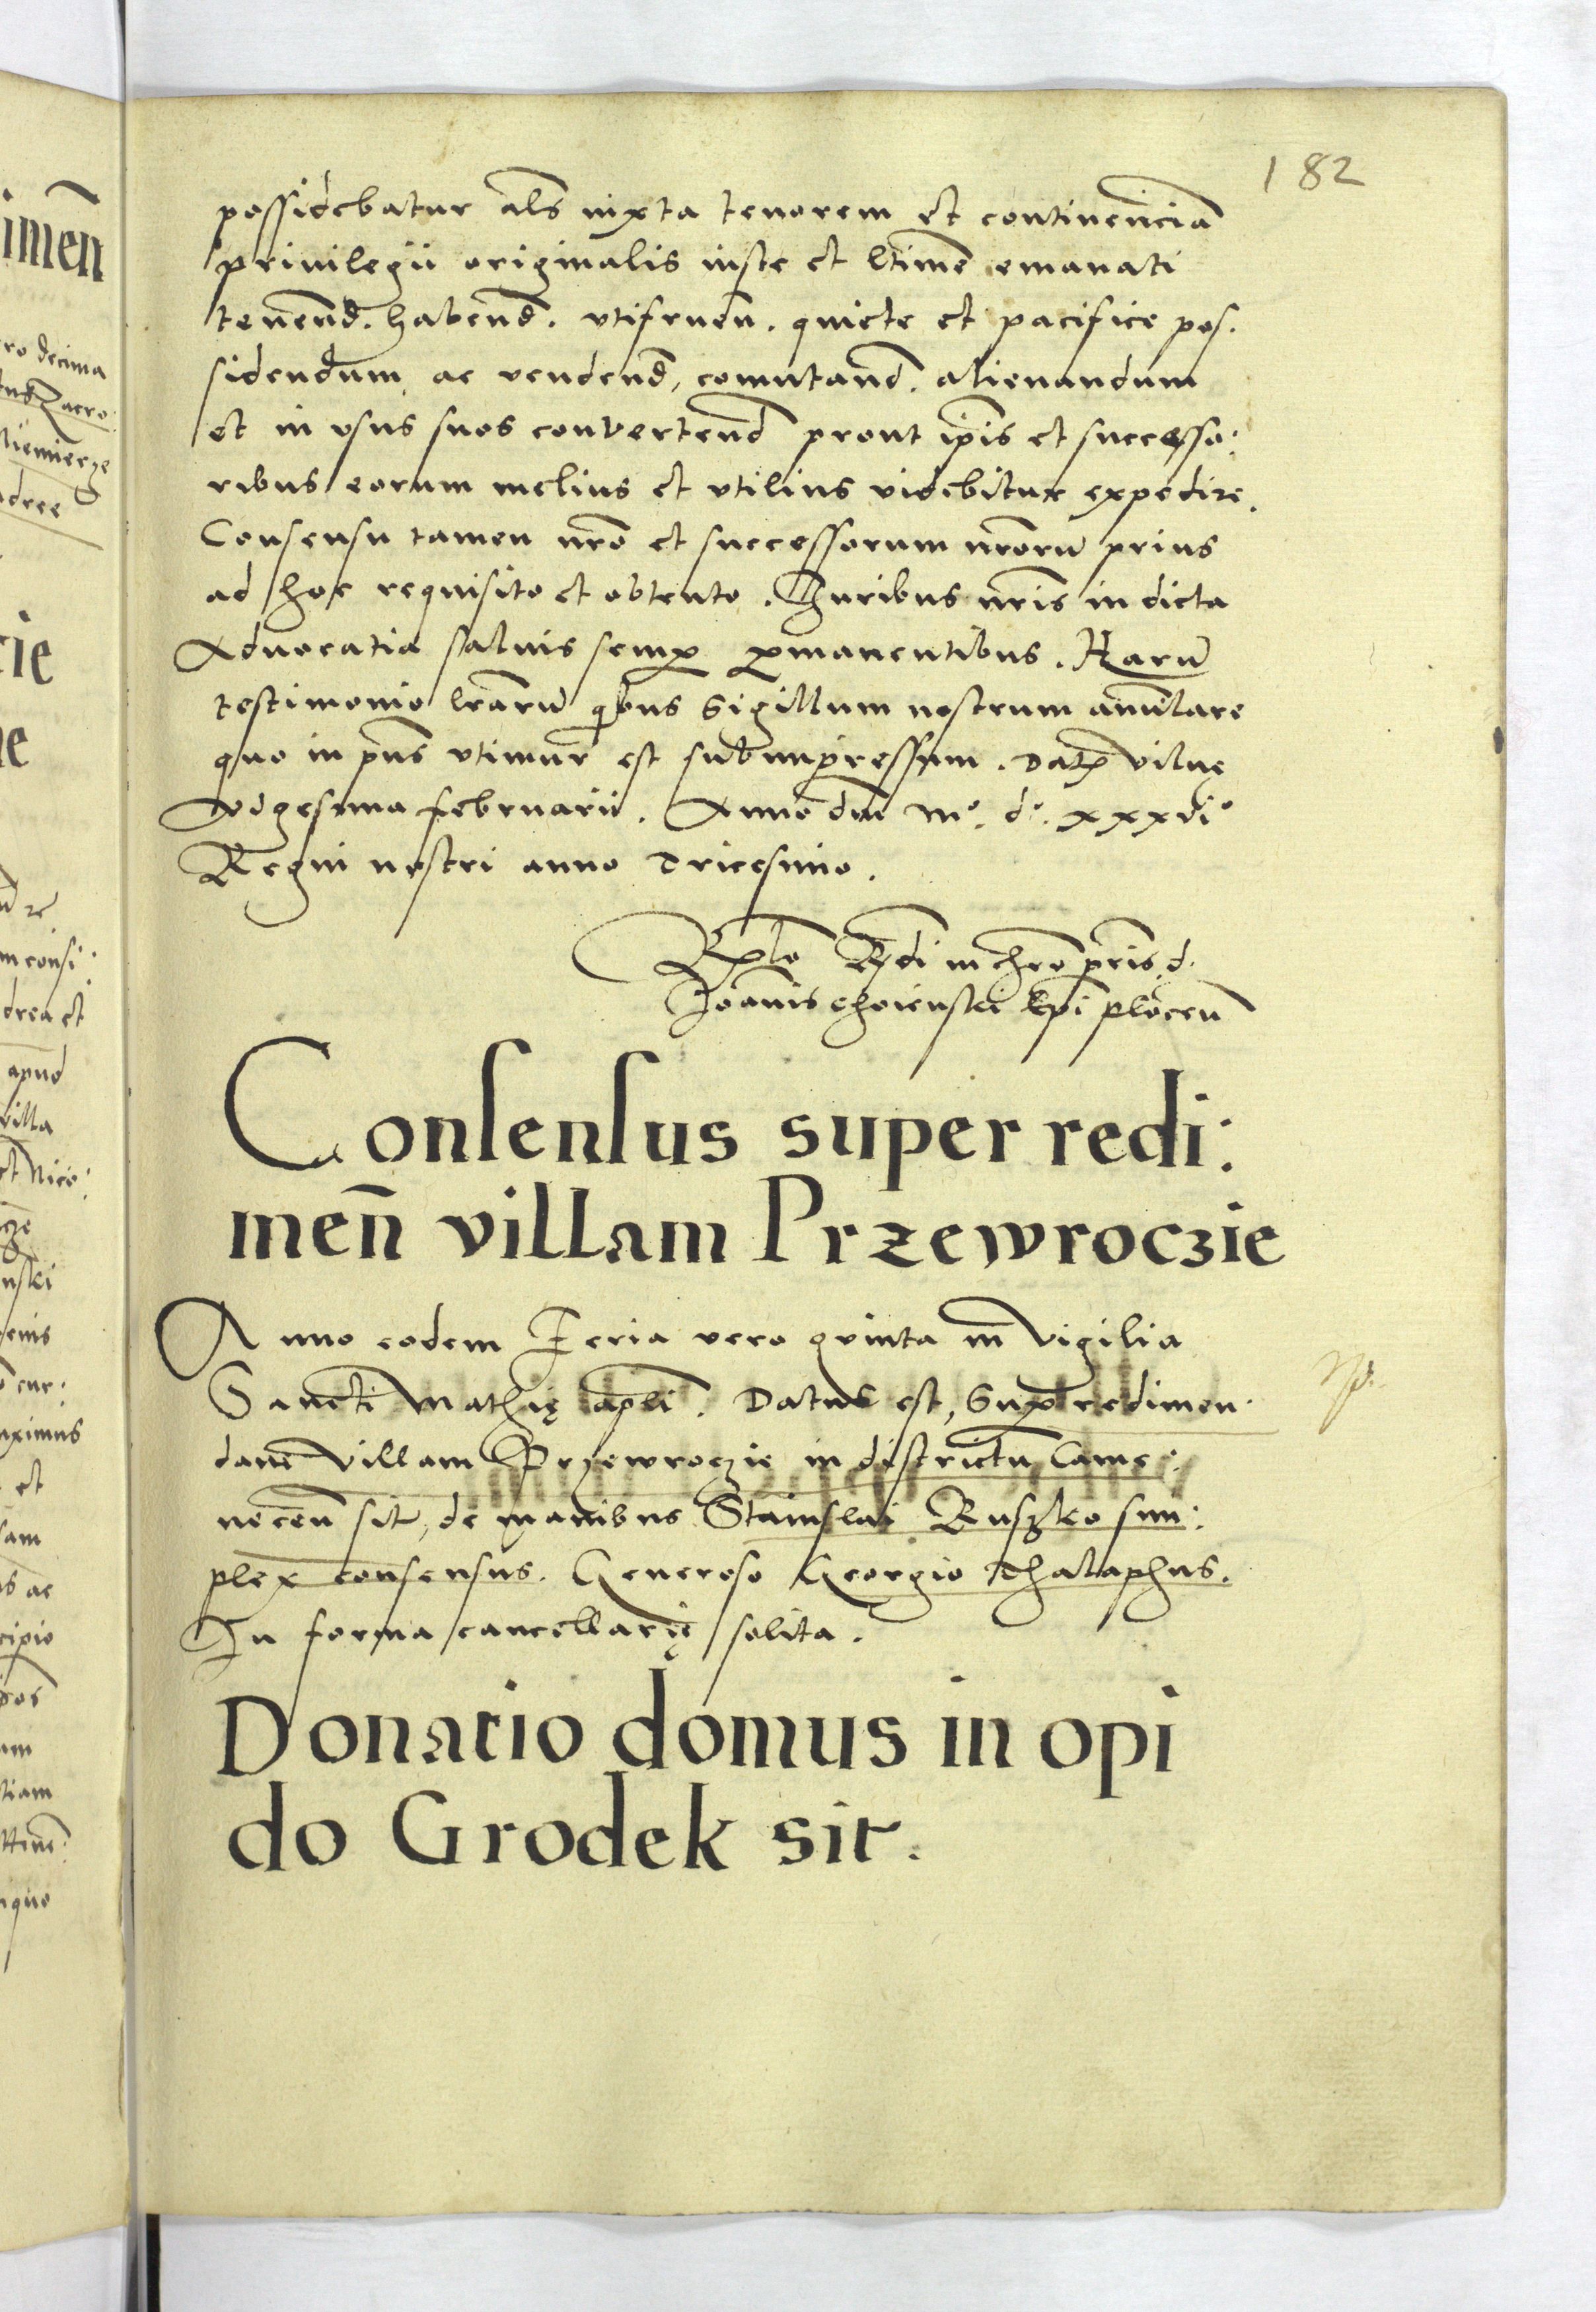 182
possidebatur als iuxta tenorem et continenciā
priuilegii originalis iuste et ltimē emanati
tenend. habend. vtifruen. quiete et pacifice pos.
sidendum ac vendend, comutand. alienandum
et in vsus suos convertend prout ipis et successo:
ribus eorum melius et vtilius videbitur expedire.
Consensu tamen nro et successorum nrorū prius
ad hoc requisito et obtento. Iuribus nris in dicta
Aduocatia saluis semp pmanentibus. Harū
testimonio lrarū qibus Sigillum nostrum anulare
quo in pns vtimur est subimpressum. Dat Vilne
Vigesima februarii. Anno dni mº. dº. xxxviº
Regni nostri anno Tricesimo.
Rlo Rndi in chro pris d.
Joannis choienski Epi plocen
Consensus super redi:
men̄ villam Przewroczie
Anno eodem Feria vero quinta in vigilia
Sancti Mathię apli. Datus est, Sup redimen.
dam villam Przewroczie in districtu Came:
necen sit, de manibus Stanislai Ruszko sim:
plex consensus. Generoso Georgio Thalaphus.
In forma cancellarię solita.
Donatio domus in opi
do Grodek sit.
imen̄
ro decima
Zacro:
Niemierze
dree
cie
m consi:
drea et
apud
villa
et Nico:
nski
enis
cur.
ximus
et
sam
s ac
cipio
pos
um
tiam
quo